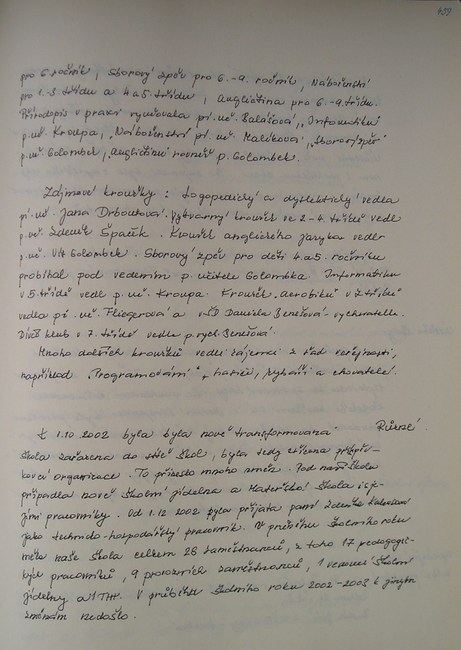 439
pro 6. ročník, Sborový zpěv pro 6.-9. ročník, Náboženství
pro 1.-3. třídu a 4. a 5. třídu, Angličtina pro 6.-9. třídu.
Přírodopis v praxi vyučovala pí. uč. Balášová, „Informatiku
p. uč. Kroupa, „Náboženství pí. uč. Malíková, „Sborový zpěv
p. uč. Golombek, „Angličtinu rovněž p. Golombek.
Zájmové kroužky: Logopedický a dyslektický vedla
pí. uč. Jana Drboutová. Výtvarný kroužek ve 2.-4. třídě vedl
p. uč. Zdeněk Špaček. Kroužek anglického jazyka vedl
p. uč. Vít Golombek. Sborový zpěv pro děti 4. a 5. ročníku
probíhal pod vedením p. učitele Golombka. Informatiku
v 5. třídě vedl p. uč. Kroupa. Kroužek „Aerobiku v 7. třídě"
vedla pí. uč. Fliegerová a Daniela Benešová - vychovatelka.
Dívčí klub v 7. třídě vedla p. vych. Benešová.
Mnoho dalších kroužků vedli zájemci z řad veřejnosti,
například „Programování", hasiči, rybáři a chovatelé.
K 1.10 2002 byla byla nově transformována Různé
škola zařazena do sítě škol, byla tedy zřízena příspěv-
kovou organizace. To přineslo mnoho změn. Pod naši školu
připadla nově Školní jídelna a Mateřská škola i s je-
jími pracovníky. Od 1.12. 2002 byla přijata paní Zdeňka
jako technicko-hospodářský pracovník. V průběhu školního roku
měla naše škola celkem 28 zaměstnanců, z toho 17 pedagogic-
kých pracovníků, 9 provozních zaměstnanců, 1 vedoucí školní
jídelny a 1 THP. V průběhu školního roku 2002-2003 k jiným
změnám nedošlo.